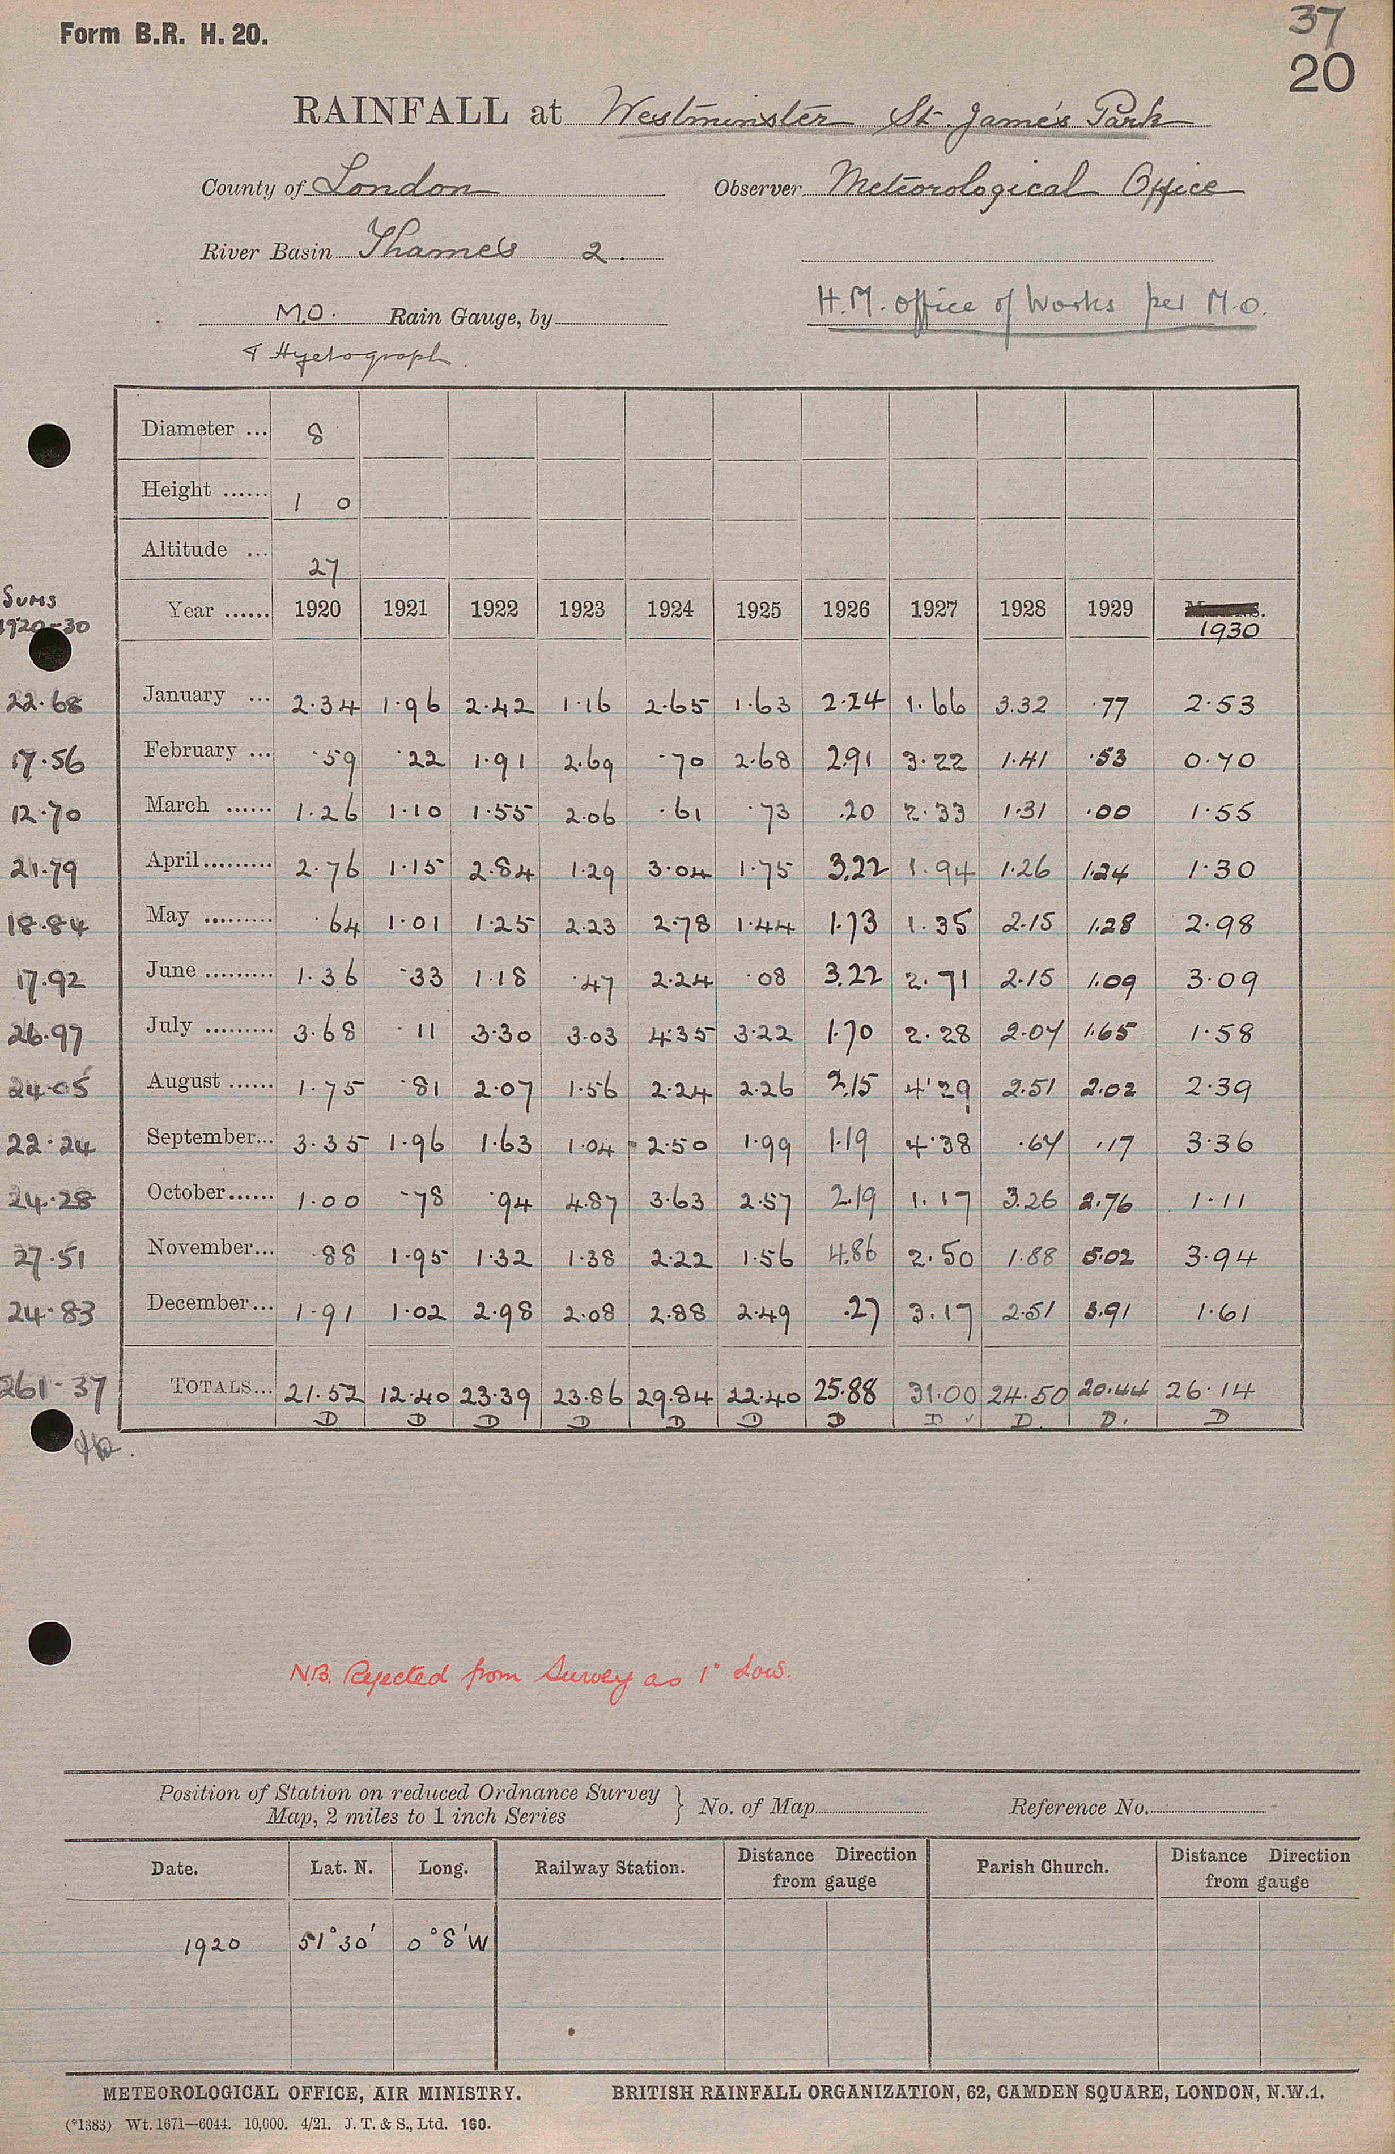 Form B.R. H. 20.
37
20
RAINFALL at Westminster St James's Park
County of London Observer Meteorological Office
River Basin Thames 2.
M.O. Rain Gauge, by H.M. Office of Works per M.O.
& Hyetograph
Diameter ... 8
Height ...... 1 0
Altitude ... 27
Sums 1920-30 Year ...... 1920 1921 1922 1923 1924 1925 1926 1927 1928 1929 1930
22.68 January ... 2.34 1.96 2.42 1.16 2.65 1.63 2.24 1.66 3.32 .77 2.53
17.56 February ... .59 .22 1.91 2.69 .70 2.68 2.91 3.22 1.41 .53 0.70
12.70 March ...... 1.26 1.10 1.55 2.06 .61 .73 .20 2.33 1.31 .00 1.55
21.79 April ......... 2.76 1.15 2.84 1.29 3.04 1.75 3.22 1.94 1.26 1.24 1.30
18.84 May ......... .64 1.01 1.25 2.23 2.78 1.44 1.73 1.35 2.15 1.28 2.98
17.92 June ......... 1.36 .33 1.18 .47 2.24 .08 3.22 2.71 2.15 1.09 3.09
26.97 July ......... 3.68 .11 3.30 3.03 4.35 3.22 1.70 2.28 2.07 1.65 1.58
24.05 August ...... 1.75 .81 2.07 1.56 2.24 2.26 2.15 4.29 2.51 2.02 2.39
22.24 September... 3.35 1.96 1.63 1.04 2.50 1.99 1.19 4.38 .67 .17 3.36
24.28 October...... 1.00 .78 .94 4.87 3.63 2.57 2.19 1.17 3.26 2.76 1.11
27.51 November... .88 1.95 1.32 1.38 2.22 1.56 4.86 2.50 1.88 5.02 3.94
24.83 December... 1.91 1.02 2.98 2.08 2.88 2.49 .27 3.17 2.51 3.91 1.61
261.37 TOTALS... 21.52 12.40 23.39 23.86 29.84 22.40 25.88 31.00 24.50 20.44 26.14
D D D D D D D D ✓ D. D. D
N.B. Rejected from Survey as 1" low.
Position of Station on reduced Ordnance Survey
Map, 2 miles to 1 inch Series } No. of Map Reference No.
Date. Lat. N. Long. Railway Station. Distance Direction from gauge Parish Church. Distance Direction from gauge
1920 51°30' 0°8'W
METEOROLOGICAL OFFICE, AIR MINISTRY. BRITISH RAINFALL ORGANIZATION, 62, CAMDEN SQUARE, LONDON, N.W.1.
(*1383) Wt. 1671—6044. 10,000. 4/21. J. T. & S., Ltd. 160.